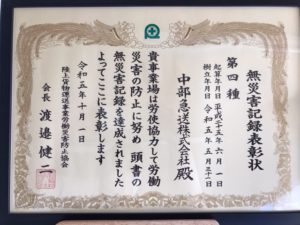 無災害記録表彰状
第四種
起算年月日 平成二十五年 六月 一日
樹立年月日 令和 五年 五月三十一日
中部急送株式会社 殿
貴事業場は労使協力して労働
災害の防止に努め 頭書の
無災害記録を達成されました
よってここに表彰します
令和五年十月一日
陸上貨物運送事業労働災害防止協会
会長 渡邉健二